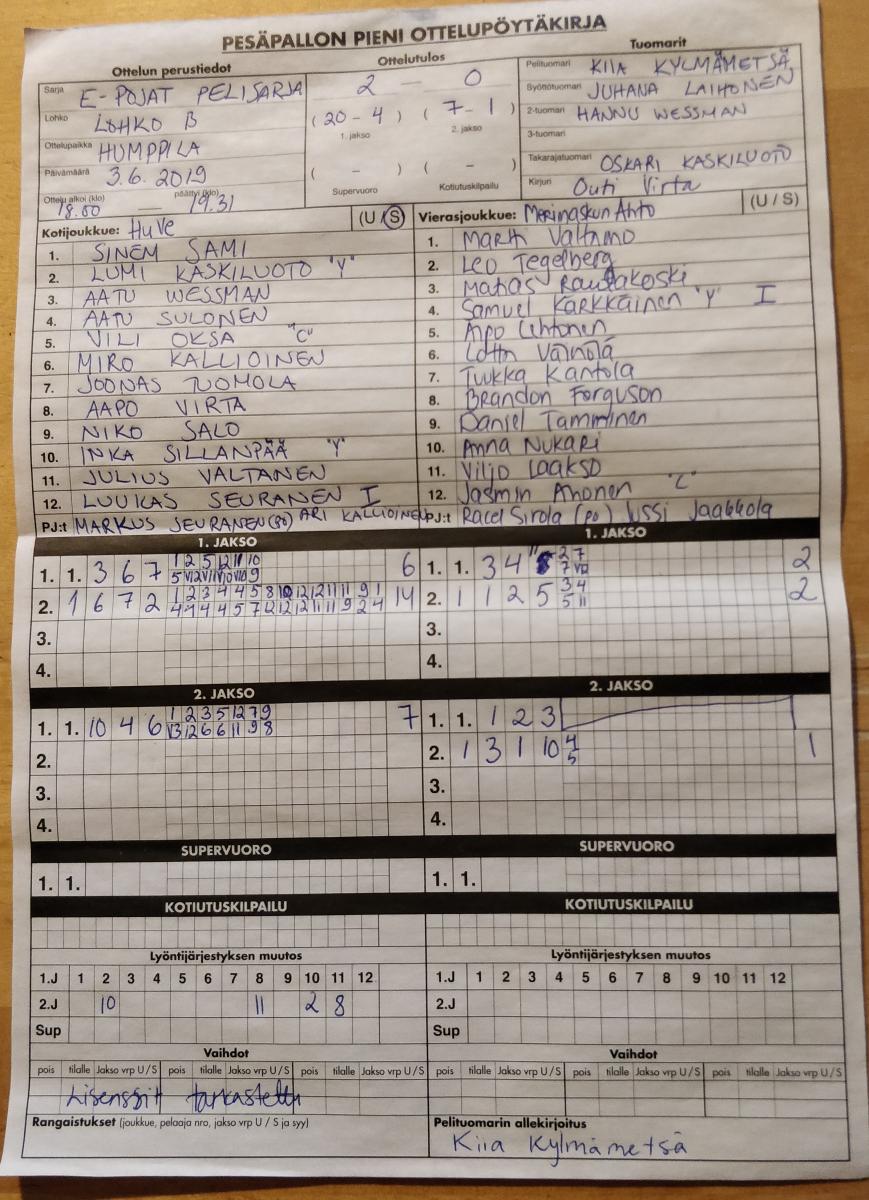 PESÄPALLON PIENI OTTELUPÖYTÄKIRJA
Ottelun perustiedot
Sarja E-POJAT PELISARJA
Lohko LOHKO B
Ottelupaikka HUMPPILA
Päivämäärä 3.6. 2019
Ottelu alkoi (klo) 18.00 — päättyi (klo) 19.31
Ottelutulos
2 — 0
( 20 - 4 ) ( 7 - 1 )
1. jakso 2. jakso
( - ) ( - )
Supervuoro Kotiutuskilpailu
Tuomarit
Pelituomari KIIA KYLMÄMETSÄ
Syöttötuomari JUHANA LAIHONEN
2-tuomari HANNU WESSMAN
3-tuomari
Takarajatuomari OSKARI KASKILUOTO
Kirjuri Outi Virta
Kotijoukkue: HuVe (U / S)
1. SINEM SAMI
2. LUMI KASKILUOTO "Y"
3. AATU WESSMAN
4. AATU SULONEN
5. VILI OKSA "C"
6. MIRO KALLIOINEN
7. JOONAS TUOMOLA
8. AAPO VIRTA
9. NIKO SALO
10. INKA SILLANPÄÄ "Y"
11. JULIUS VALTANEN
12. LUUKAS SEURANEN I
PJ:t MARKUS SEURANEN (po) ARI KALLIOINEN
Vierasjoukkue: Merinaskun Ahto (U / S)
1. Martti Valtamo
2. Leo Tegelberg
3. Matias Rautakoski
4. Samuel Karkkainen "Y" I
5. Arpo Lehtonen
6. Lotta Väinölä
7. Tuukka Kantola
8. Brandon Forguson
9. Daniel Tamminen
10. Anna Nukari
11. Viljo Laakso
12. Jasmin Ahonen "C"
PJ:t Racel Sirola (po) Jussi Jaakkola
1. JAKSO
1. 1. 3 6 7 6
2. 1 6 7 2 14
3.
4.
1. JAKSO
1. 1. 3 4 2
2. 1 1 2 5 3 4 2
5 11
3.
4.
2. JAKSO
1. 1. 10 4 6 1 2 3 5 12 7 9 7
13 12 6 6 11 9 8
2.
3.
4.
2. JAKSO
1. 1. 1 2 3
2. 1 3 1 10 4 1
5
3.
4.
SUPERVUORO
1. 1.
SUPERVUORO
1. 1.
KOTIUTUSKILPAILU
KOTIUTUSKILPAILU
Lyöntijärjestyksen muutos
1.J 1 2 3 4 5 6 7 8 9 10 11 12
2.J 10 11 2 8
Sup
Lyöntijärjestyksen muutos
1.J 1 2 3 4 5 6 7 8 9 10 11 12
2.J
Sup
Vaihdot
pois tilalle Jakso vrp U / S pois tilalle Jakso vrp U / S pois tilalle Jakso vrp U / S
Lisenssit tarkastettu
Rangaistukset (joukkue, pelaaja nro, jakso vrp U / S ja syy)
Vaihdot
pois tilalle Jakso vrp U / S pois tilalle Jakso vrp U / S pois tilalle Jakso vrp U / S
Pelituomarin allekirjoitus
Kiia Kylmämetsä